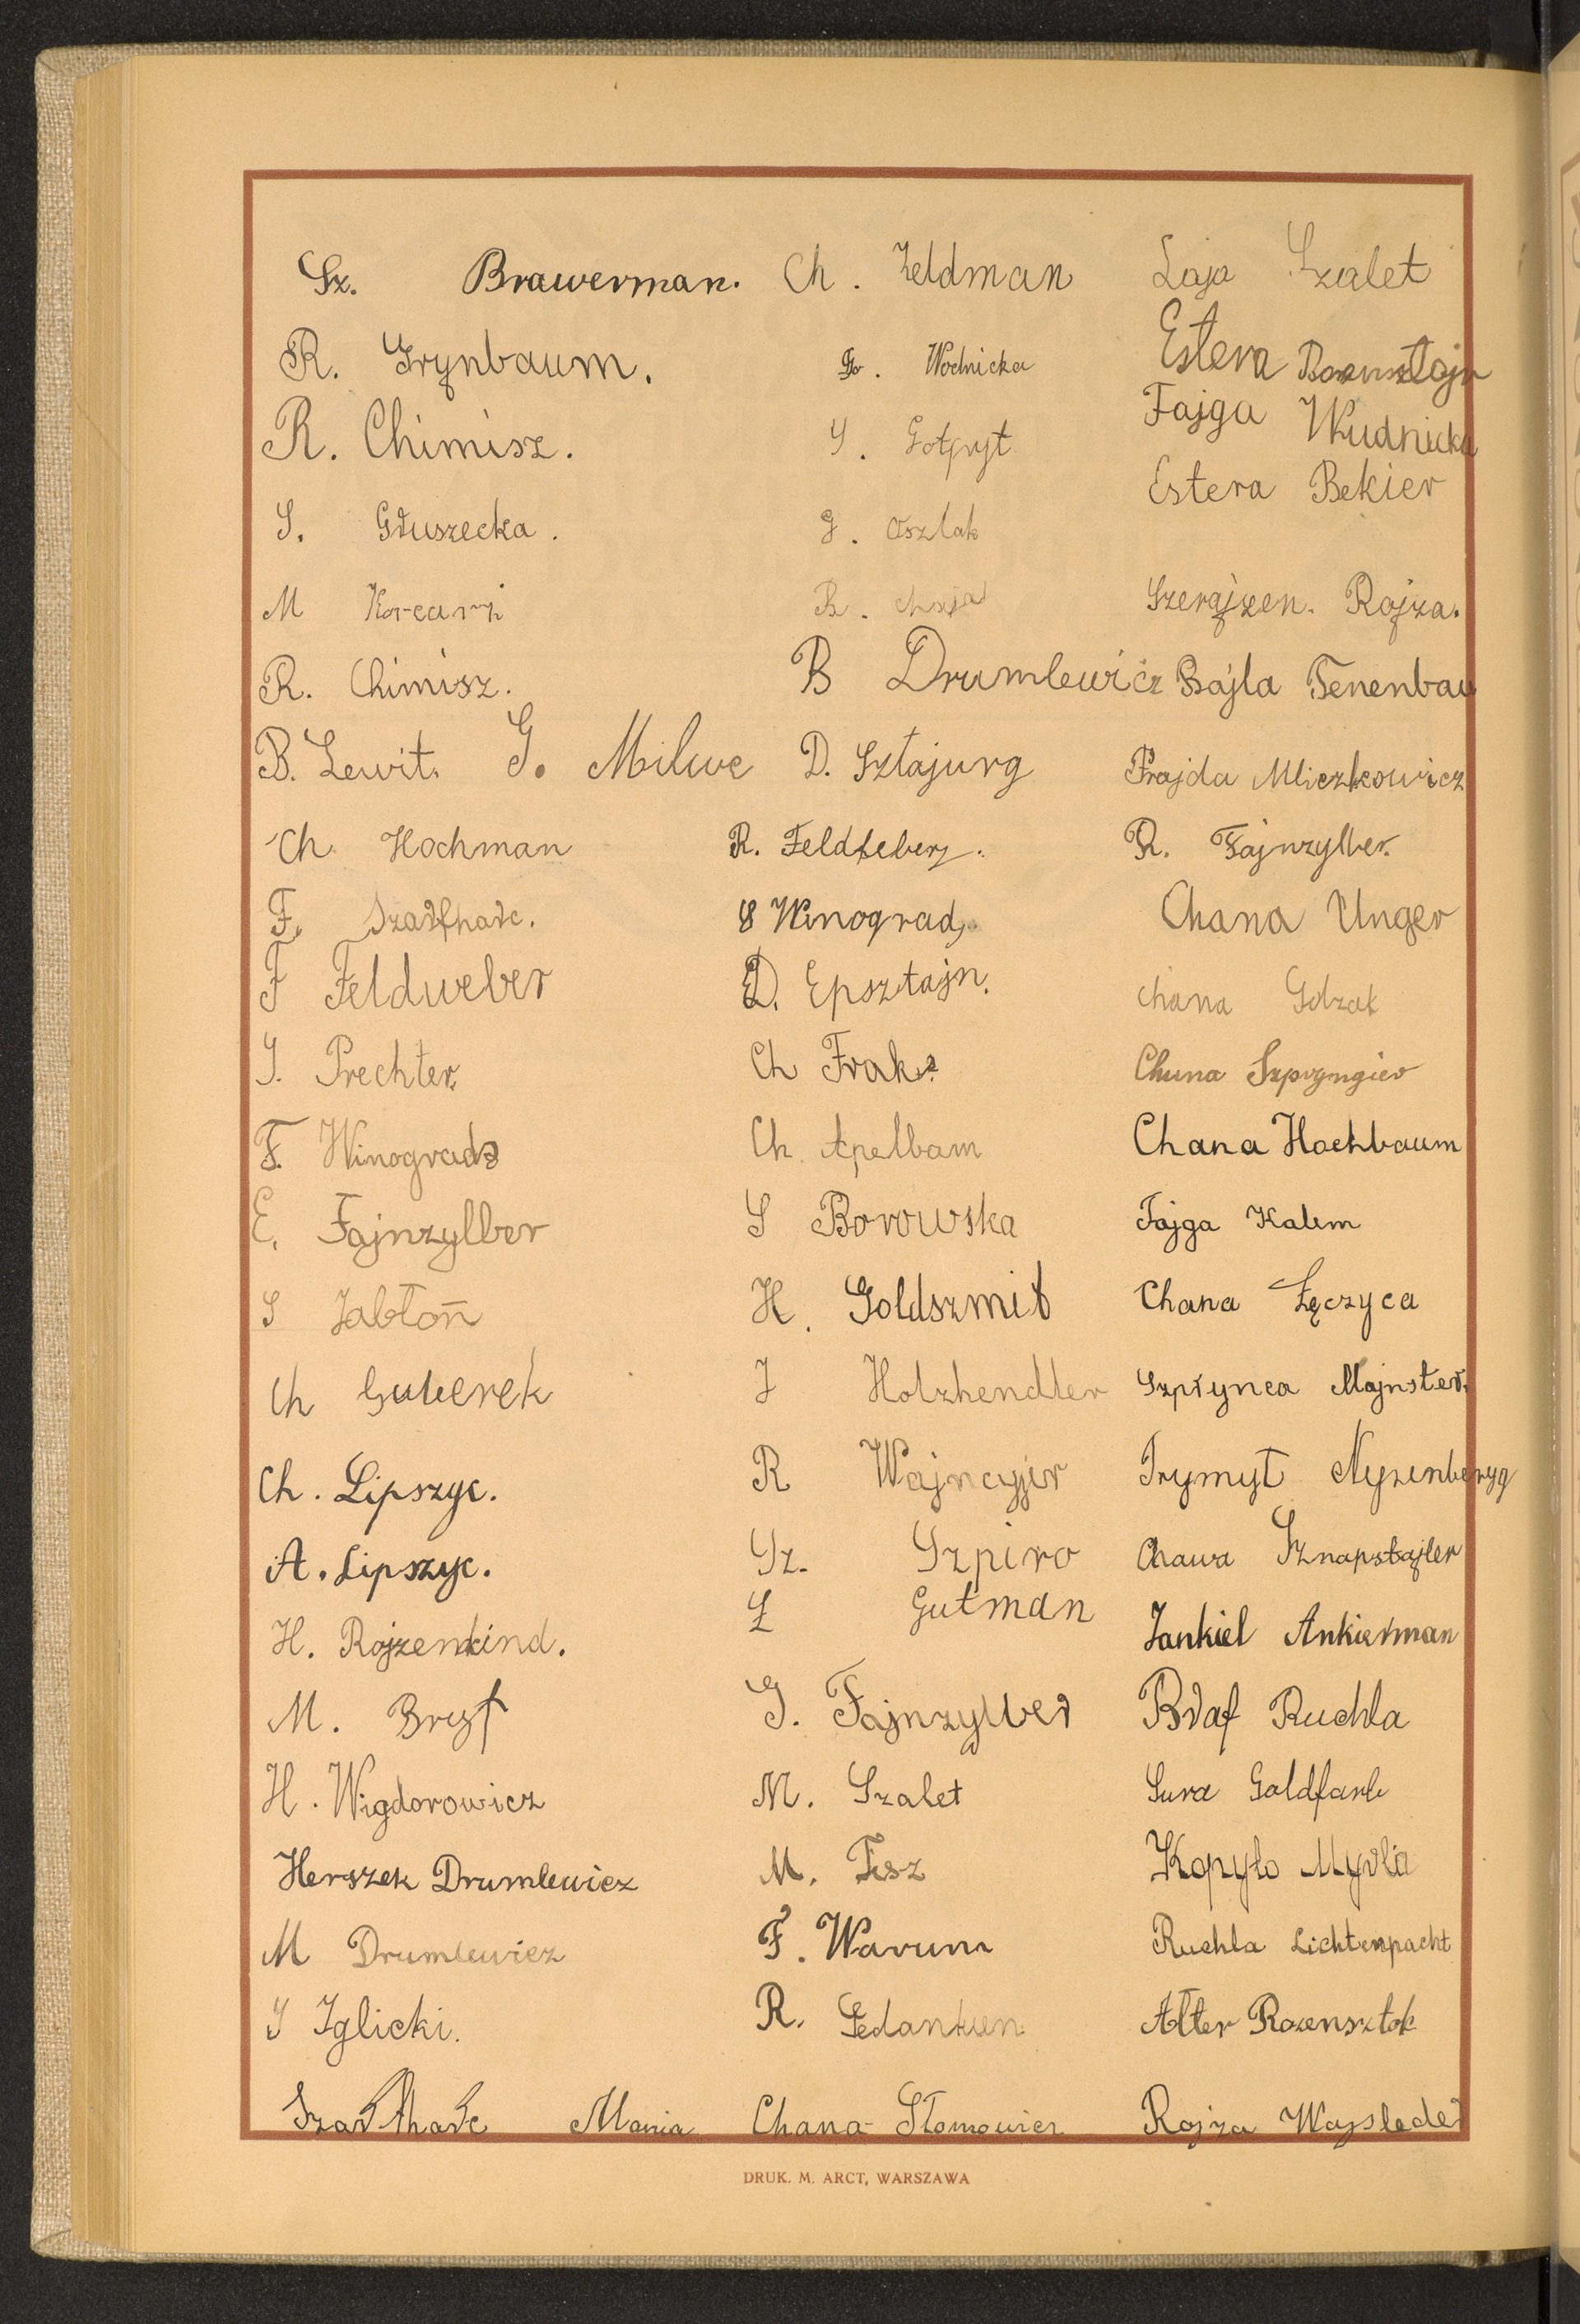 Sz. Brawerman. Ch. Zeldman Laja Szalet
R. Grynbaum. Wodnicka Estera
R. Chimisz. Fajga Wudnicka
S. Głuszecka. J. Oszlak Estera Bekier
M B. Szerajzen. Rojza.
R. Chimisz. B Drumlewicz Bajla Tenenbau
B. Lewit. G. Milwe D. Sztajurg Frajda Mliczkowicz
Ch Hochman R. R. Fajnzylber.
F. Winograd Chana Unger
F Feldweber D. Epsztajn. Chana Golzak
J. Prechter. Ch Chuna Szpryngier
F. Winograd Ch. Apelbam Chana Hochbaum
E. Fajnzylber S Borowska Fajga Kalem
S Jabłoń H. Goldszmit Chana Łęczyca
Ch Guterek J Holzhendler Szprynca Majnster.
Ch. Lipszyc. R Frymyt Nyzenberyg
A. Lipszyc. Sz. Szpiro Chawa Sznapstajler
H. Rojzenkind. Ł Gutman Jankiel Ankierman
M. Bryf G. Fajnzylber Braf Ruchla
H. Wigdorowicz M. Szalet Sura Goldfarb
Herszek Drumlewicz M. Fisz Kopyło Myrla
M Drumlewicz F. Warum Ruchla Lichtenpacht
S Iglicki. R. Alter Rozensztok
Mania Chana Słomowicz Rojza Wajsleder
DRUK. M. ARCT, WARSZAWA